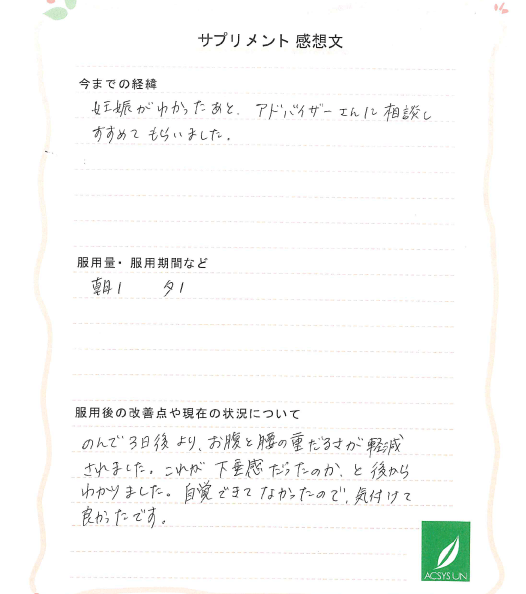 サプリメント 感想文
今までの経緯
妊娠がわかったあと、アドバイザーさんに相談し
すすめてもらいました。
服用量・服用期間など
朝1 夕1
服用後の改善点や現在の状況について
のんで3日後より、お腹と腰の重だるさが軽減
されました。これが下垂感だったのか、と後から
わかりました。自覚できてなかったので、気付けて
良かったです。
ACSYS UN